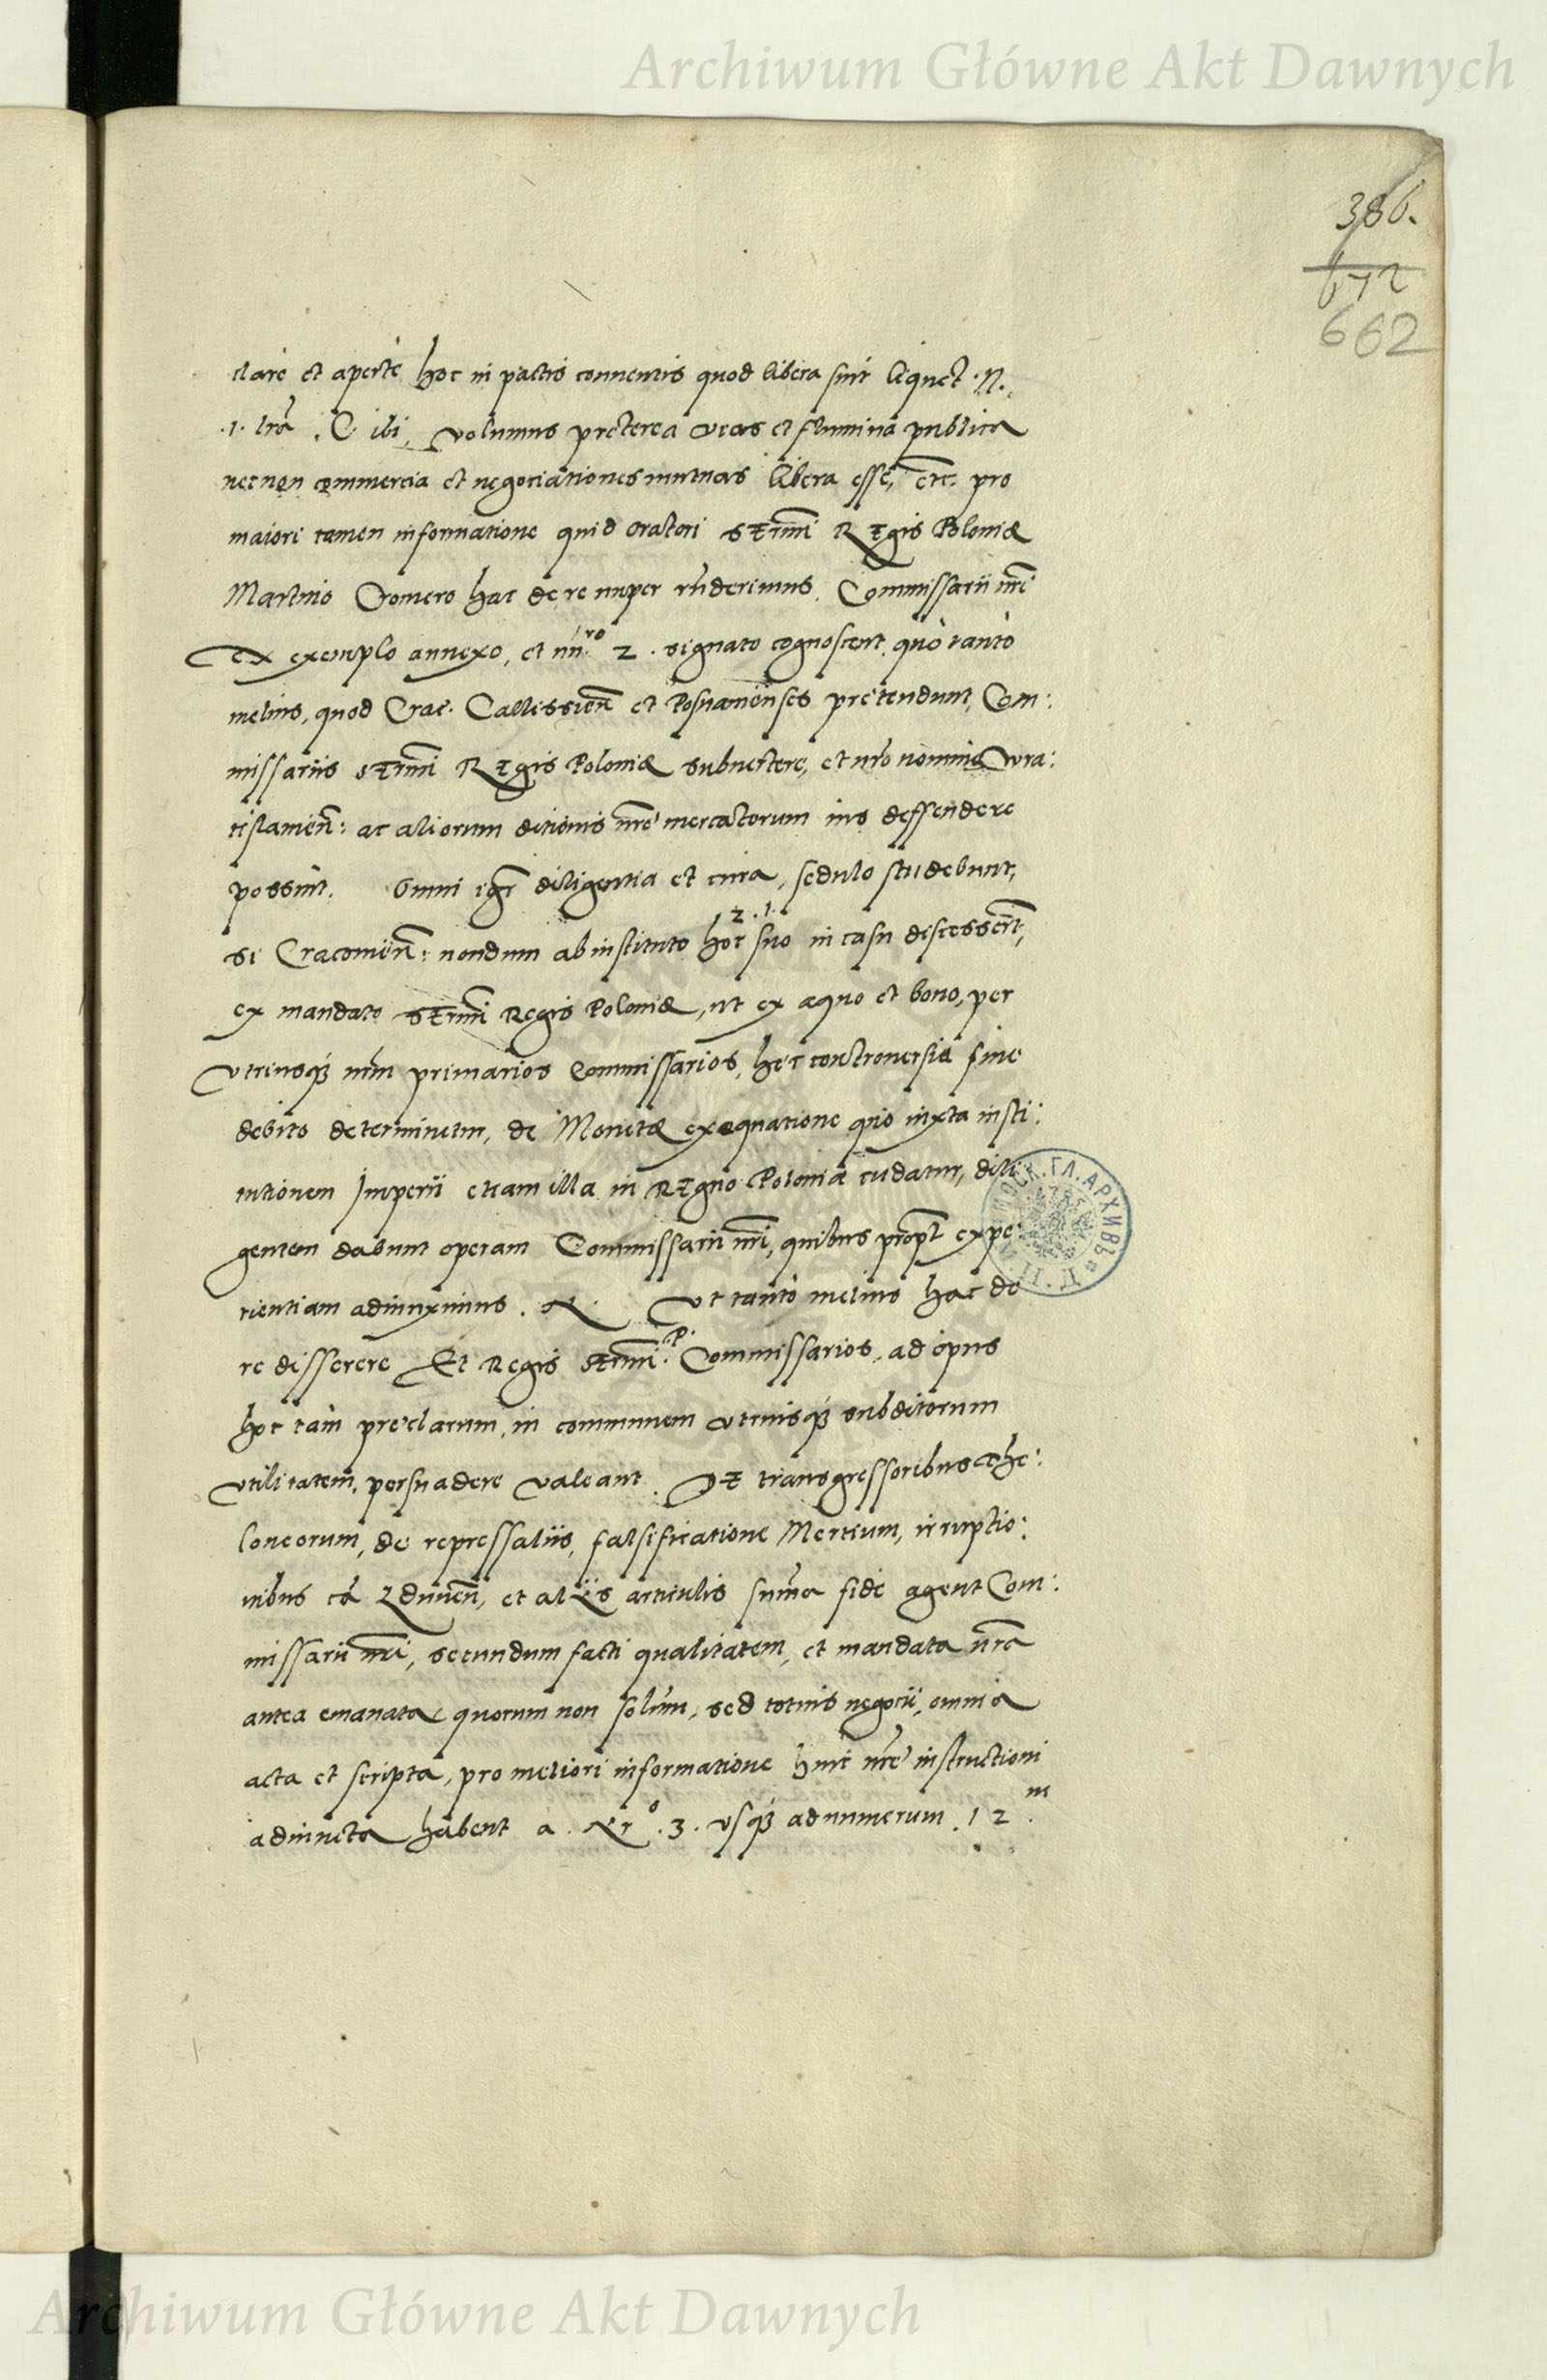 Archiwum Główne Akt Dawnych
386.
672
662
clarè et apertè hoc in pactis conventis quod libera sint liquet .N.
.1. lrã .C. ibi, volumus preterea vias et flumina publica
necnon commercia et negociationes mutuas libera esse, etc. pro
maiori tamen informatione quid oratori SErmi REgis Poloniæ
Martino Cromero hac de re nuper rñderimus. Commissarii nrĩ
ex exemplo annexo, et nũ.ro 2. signato cognoscent, quò tantò
melius, quod Crac. Calissieñ et Posnanienses prętendunt, Com:
missariis SErmi REgis Poloniæ subvertere, et nrõ nomine Wra:
tislavieñ: ac aliorum ditionis nrẽ mercatorum ius deffendere
possint. Omni igr̃ diligentia et cura, sedulo studebunt,
2. 1.
si Cracovieñ: nondum ab instituto hoc suo in casu discesserĩt,
ex mandato SErmi Regis Poloniæ, ut ex æquo et bono, per
utriusq3 nrm̃ primarios Commissarios, hęc controversia fine
debito determinetur, de Monetæ exæquatione quo iuxta insti:
tutionem Imperii etiam illa in REgno Poloniæ cudatur, dili
gentem dabunt operam Commissarii nrĩ, quibus propt̃ expe:
rientiam adiunximus. N. Ut tantò melius hac de
re disserere Et Regis SErmi. P. Commissarios, ad opus
hoc tam pręclarum, in communem utriusq3 subditorum
utilitatem, persuadere valeant. DE transgressoribus The:
loneorum, de repressaliis, falsificatione Mercium, irruptio:
nibus et aliis articulis sum̃a fide agent Com:
missarii nrĩ, secundum facti qualitatem, et mandata nrã
antea emanata quorum non solùm, sed totius negocii, omnia
acta et scripta, pro meliori informatione huic nrẽ instructioni
adiuncta habent a Nr.o .3. usq3 ad numerum .12.m
МОСК. ГЛ. АРХИВЪ
Archiwum Główne Akt Dawnych